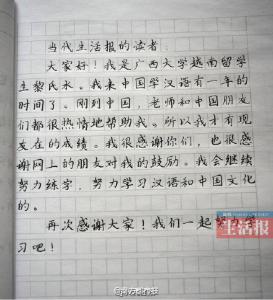 当代生活报的读者:
大家好!我是广西大学越南留学
生黎氏水。我来中国学汉语有一年的
时间了。刚到中国,老师和中国朋友
们都很热情地帮助我。所以我才有现
在的成绩。我很感谢你们,也很感
谢网上的朋友对我的鼓励。我会继续
努力练字,努力学习汉语和中国文化
的。
再次感谢大家!我们一起努力学
习吧!
生活报